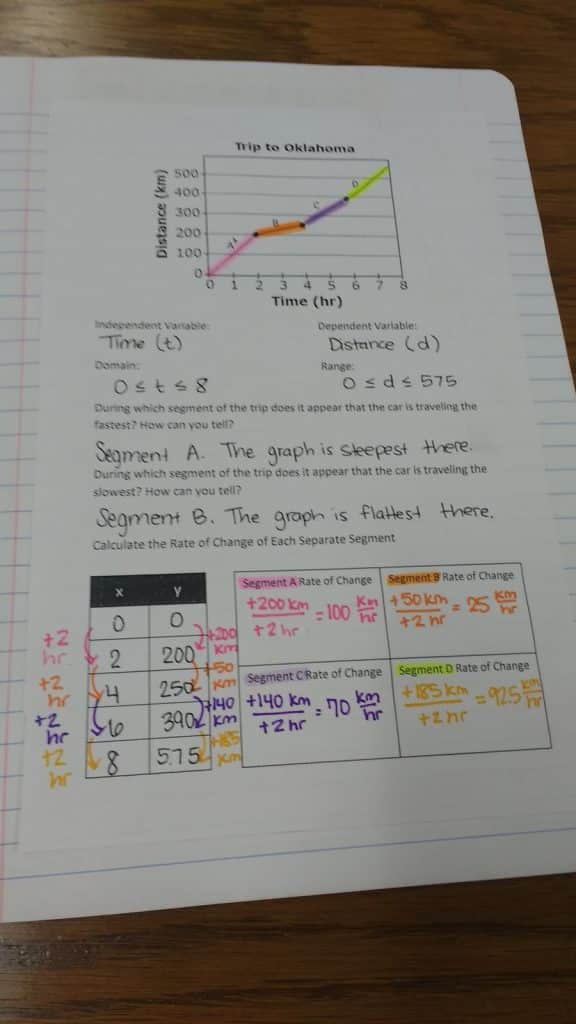 Trip to Oklahoma
Distance (km)
500
400
300
200
100
0
A
B
C
D
0 1 2 3 4 5 6 7 8
Time (hr)
Independent Variable:
Time (t)
Dependent Variable:
Distance (d)
Domain:
0 ≤ t ≤ 8
Range:
0 ≤ d ≤ 575
During which segment of the trip does it appear that the car is traveling the
fastest? How can you tell?
Segment A. The graph is steepest there.
During which segment of the trip does it appear that the car is traveling the
slowest? How can you tell?
Segment B. The graph is flattest there.
Calculate the Rate of Change of Each Separate Segment
x y
0 0
2 200
4 250
6 390
8 575
+2
hr
+2
hr
+2
hr
+2
hr
+200
km
+50
km
+140
km
+185
km
Segment A Rate of Change
+200 km
+2 hr
= 100 km
hr
Segment B Rate of Change
+50 km
+2 hr
= 25 km
hr
Segment C Rate of Change
+140 km
+2 hr
= 70 km
hr
Segment D Rate of Change
+185 km
+2 hr
= 925 km
hr